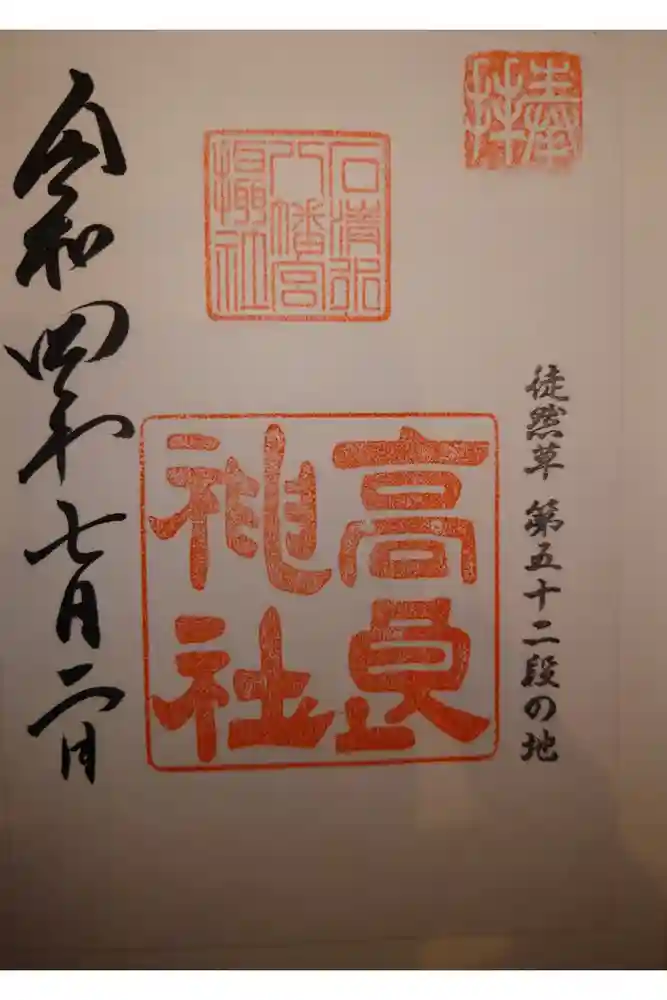 奉拝
徒然草 第五十二段の地
石清水
八幡宮
摂社
高良
神社
令和四年七月二日